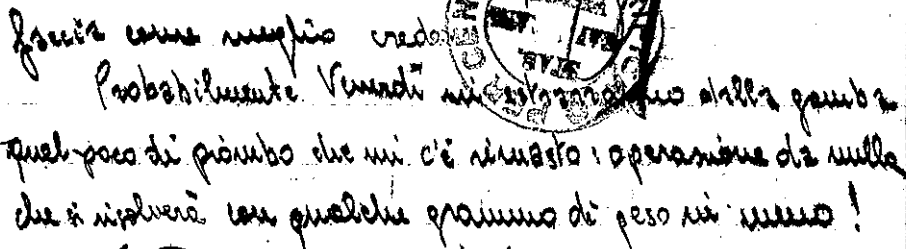 faccia come meglio crede
Probabilmente Venerdì mi estrarranno dalla gamba
quel poco di piombo che mi c'è rimasto: operazione da nulla
che si risolverà con qualche grammo di peso in meno!